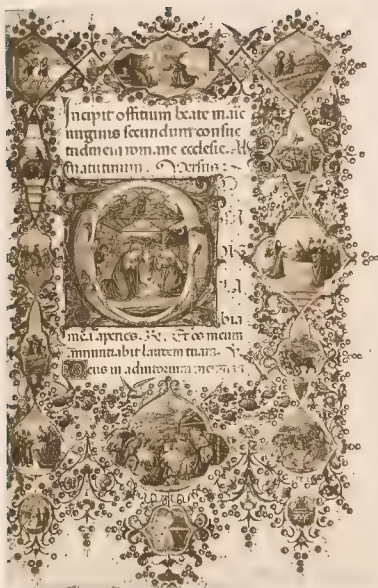 Incipit offitium beate marie
virginis secundum consue
tudinem romane ecclesie. Ad
matutinum. Versus
D
bia
mea aperies. R. Et os meum
annuntiabit laudem tuam.
Deus in adiutorium meum